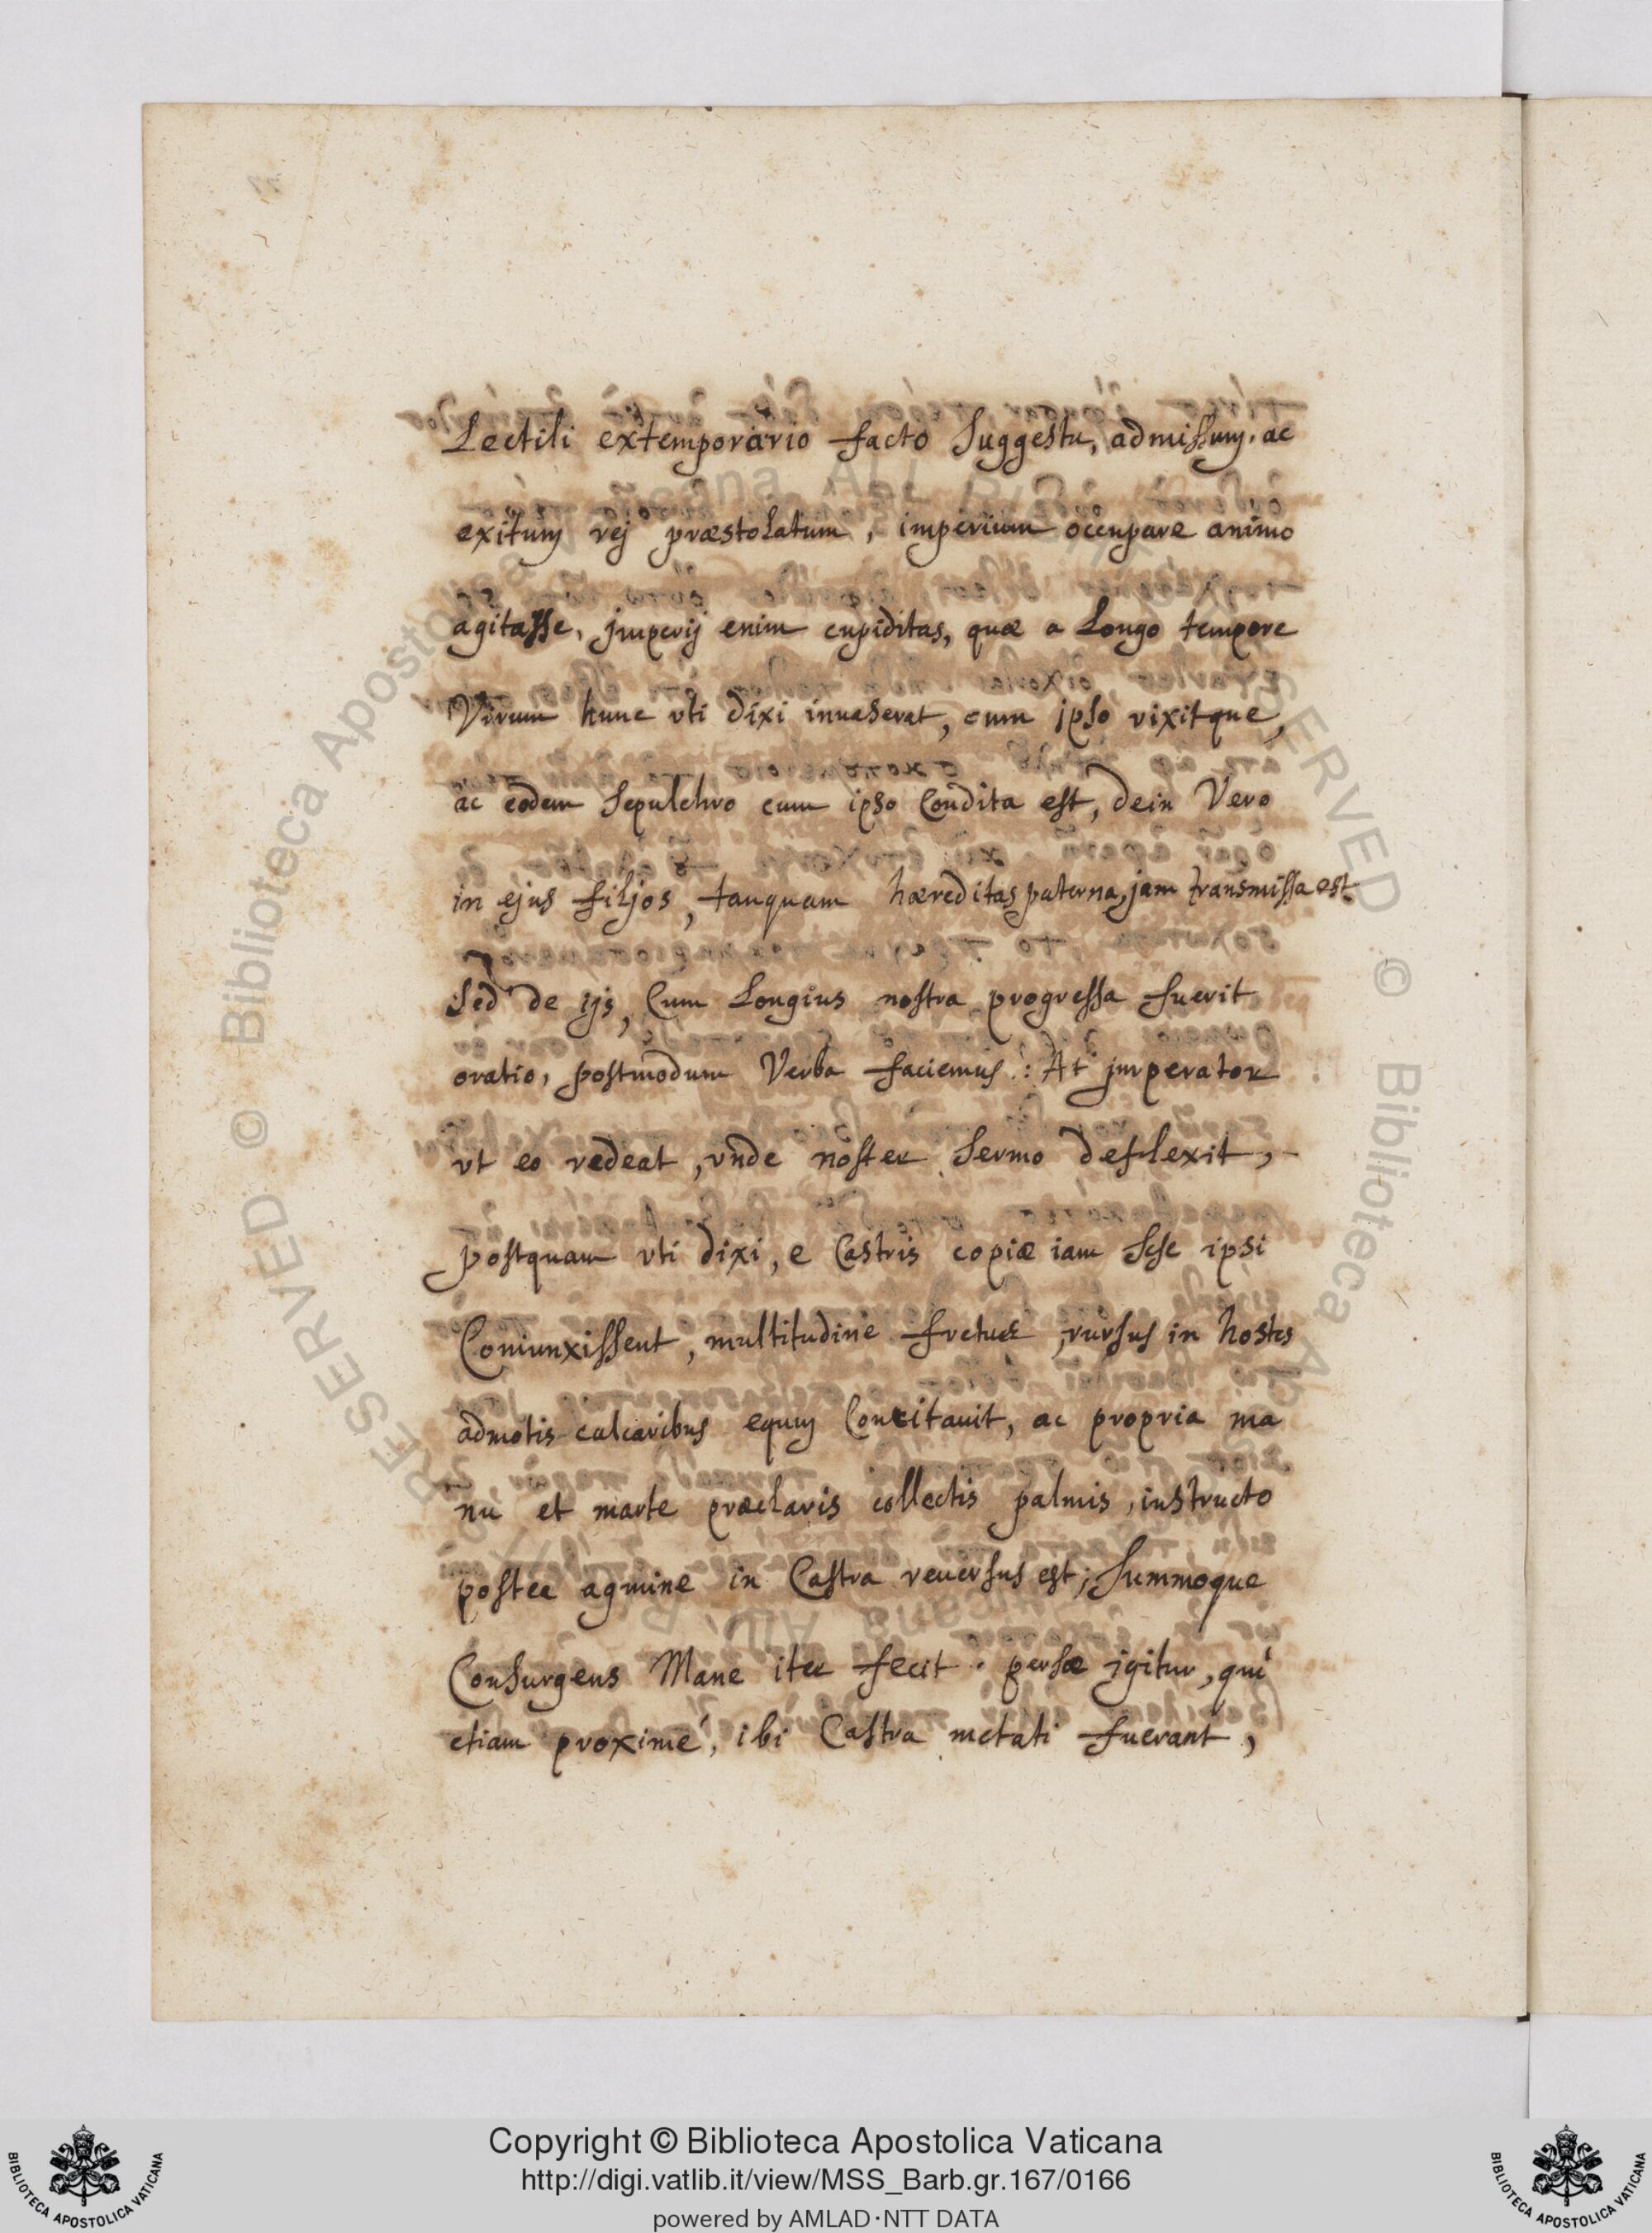 Lectili extemporario facto Suggestu, admissum, ac
exitum rej præstolatum, imperium occupare animo
agitasse, jmperij enim cupiditas, quæ a Longo tempore
Virum hunc vti dixi inuaserat, cum ipso vixitque,
ac eodem Sepulchro cum ipso Condita est, dein Vero
in ejus filjos, tanquam hæreditas paterna, jam transmissa est
Sed de ijs, Cum Longius nostra progressa fuerit
oratio, postmodum Verba faciemus: At jmperator
vt eo redeat, vnde noster Sermo deflexit,
postquam vti dixi, e Castris copiæ iam Sese ipsi
Coniunxissent, multitudine fretus, rursus in hostes
admotis calcaribus equum Concitauit, ac propria ma
nu et marte præclaris collectis palmis, instructo
postea agmine in Castra reuersus est; Summoque
Consurgens Mane iter fecit. persæ igitur, qui
etiam proximé, ibi Castra metati fuerant,
© Biblioteca Apostolica Vaticana
RESERVED
Copyright © Biblioteca Apostolica Vaticana
http://digi.vatlib.it/view/MSS_Barb.gr.167/0166
powered by AMLAD·NTT DATA
BIBLIOTECA APOSTOLICA VATICANA
BIBLIOTECA APOSTOLICA VATICANA